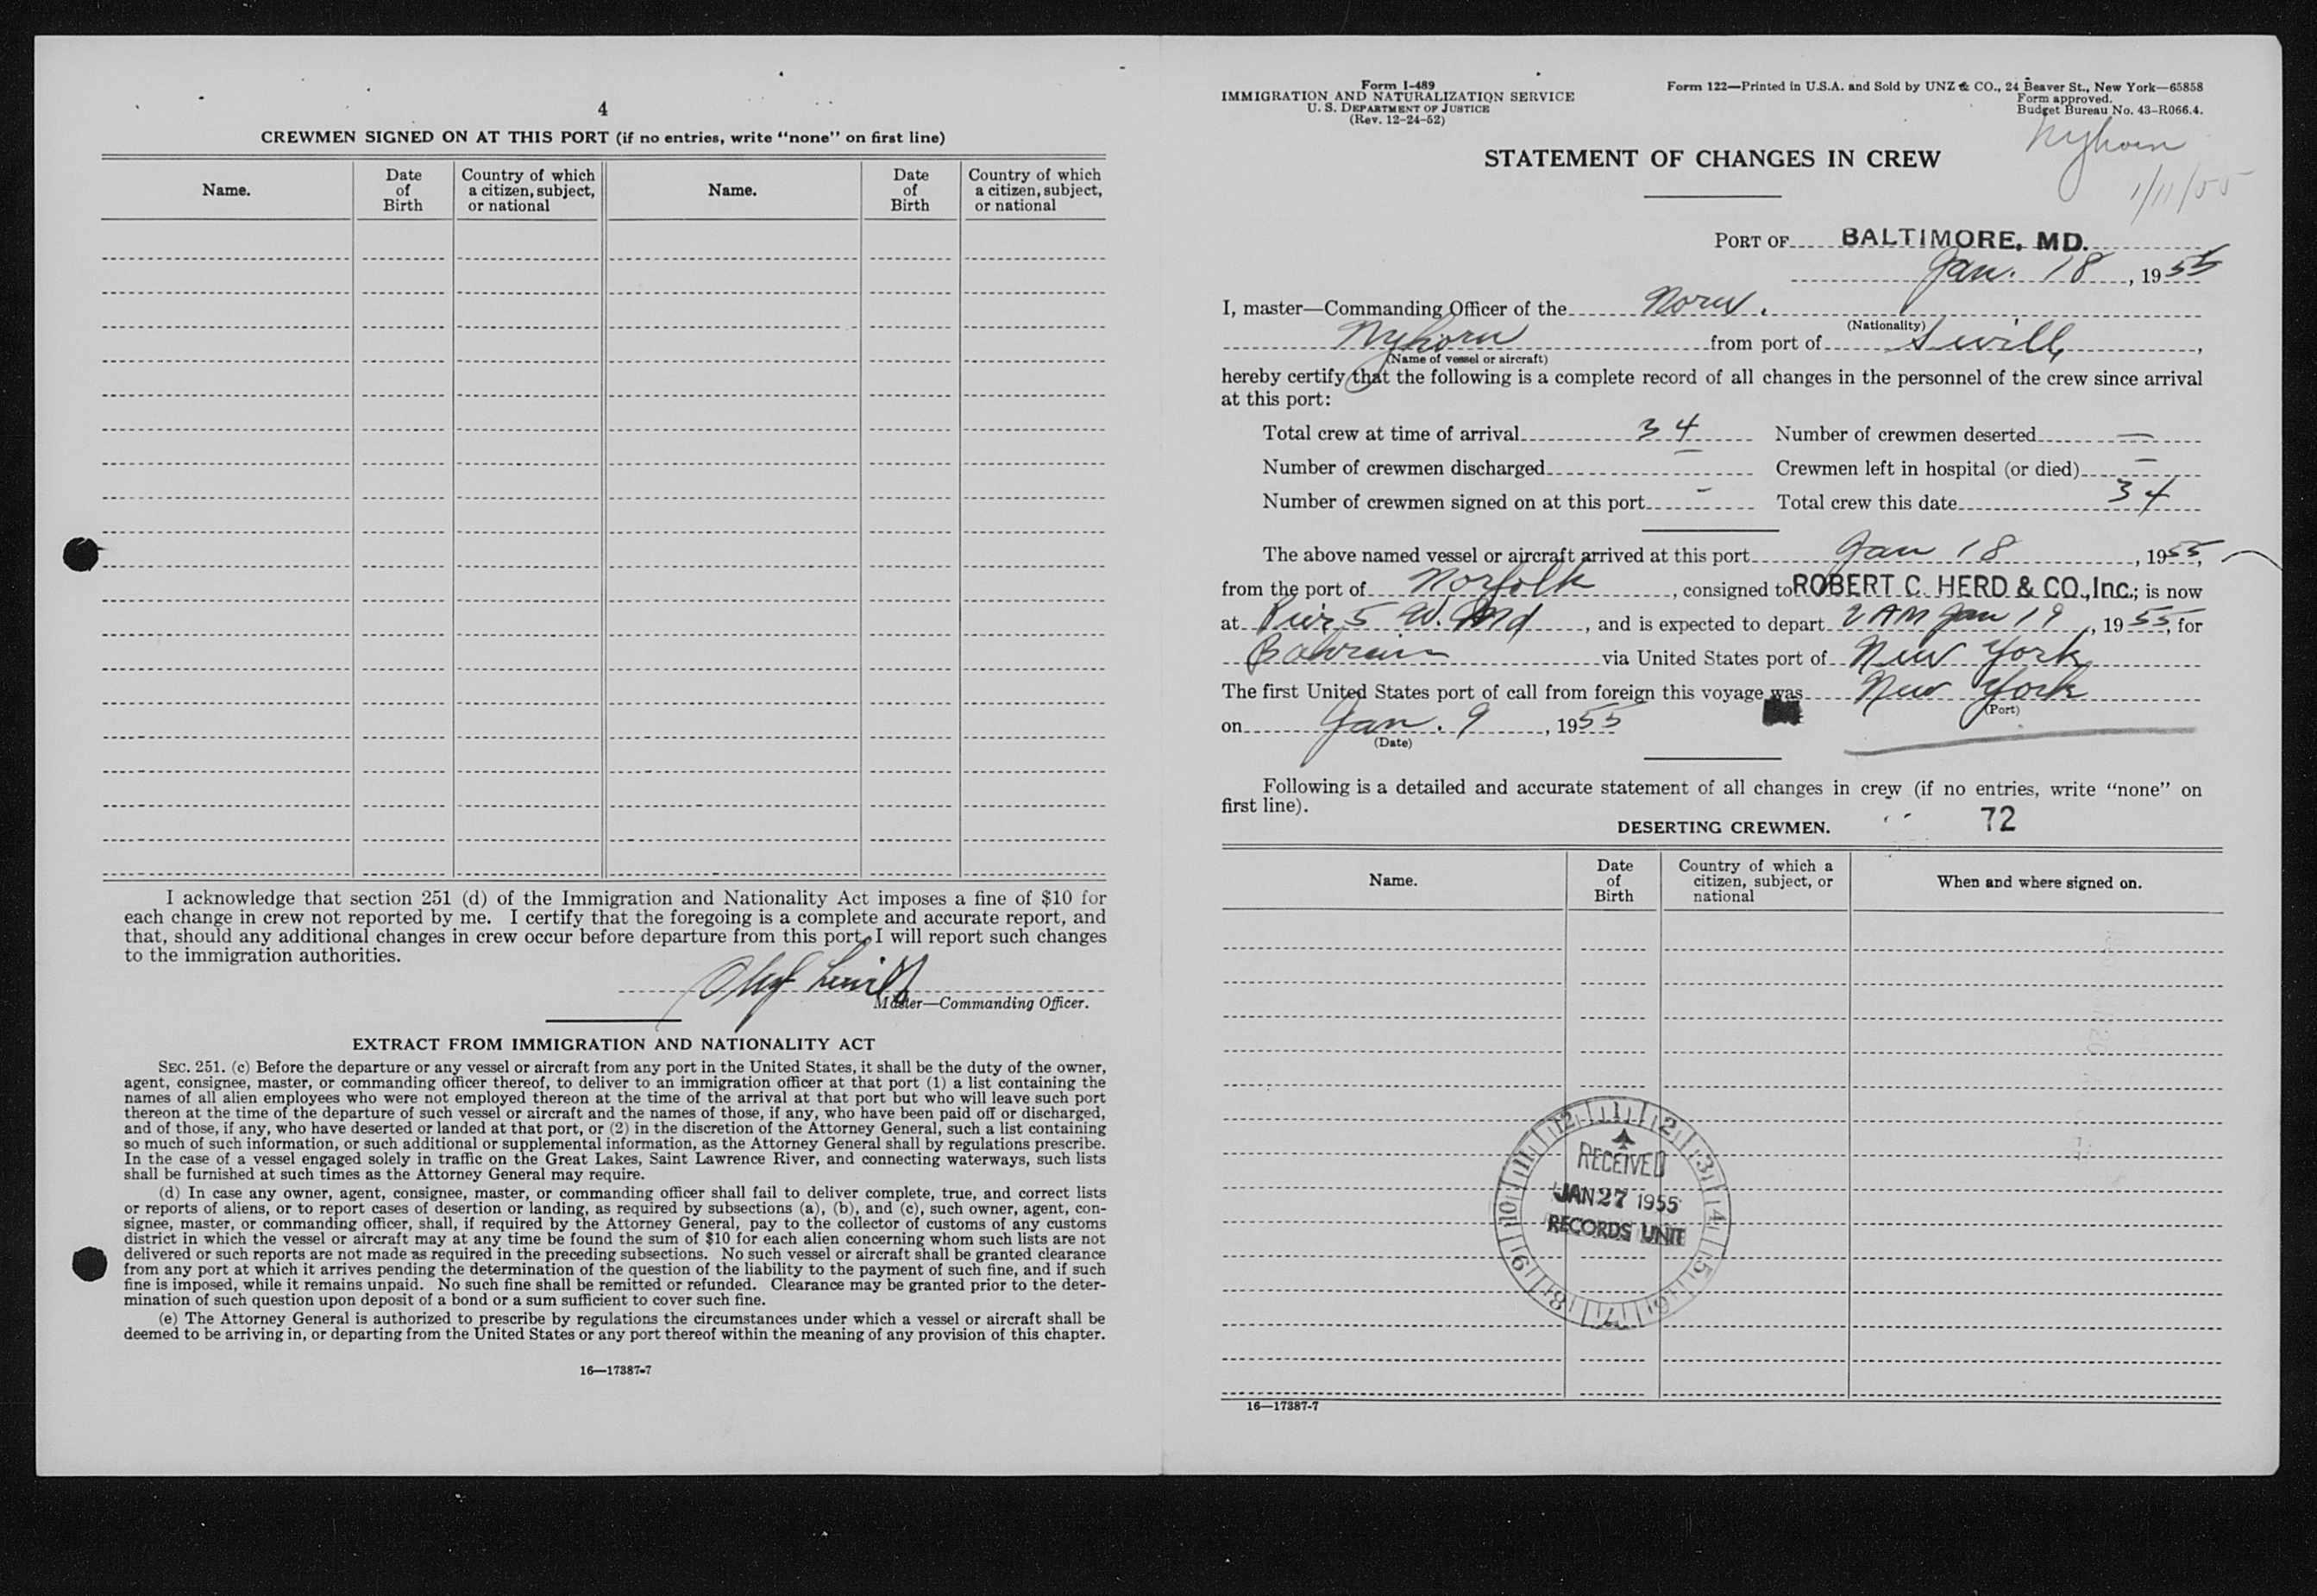 4
CREWMEN SIGNED ON AT THIS PORT (if no entries, write "none" on first line)
Name.
Date of Birth
Country of which a citizen, subject, or national
Name.
Date of Birth
Country of which a citizen, subject, or national
I acknowledge that section 251 (d) of the Immigration and Nationality Act imposes a fine of $10 for
each change in crew not reported by me. I certify that the foregoing is a complete and accurate report, and
that, should any additional changes in crew occur before departure from this port, I will report such changes
to the immigration authorities.
Master—Commanding Officer.
EXTRACT FROM IMMIGRATION AND NATIONALITY ACT
SEC. 251. (c) Before the departure or any vessel or aircraft from any port in the United States, it shall be the duty of the owner,
agent, consignee, master, or commanding officer thereof, to deliver to an immigration officer at that port (1) a list containing the
names of all alien employees who were not employed thereon at the time of the arrival at that port but who will leave such port
thereon at the time of the departure of such vessel or aircraft and the names of those, if any, who have been paid off or discharged,
and of those, if any, who have deserted or landed at that port, or (2) in the discretion of the Attorney General, such a list containing
so much of such information, or such additional or supplemental information, as the Attorney General shall by regulations prescribe.
In the case of a vessel engaged solely in traffic on the Great Lakes, Saint Lawrence River, and connecting waterways, such lists
shall be furnished at such times as the Attorney General may require.
(d) In case any owner, agent, consignee, master, or commanding officer shall fail to deliver complete, true, and correct lists
or reports of aliens, or to report cases of desertion or landing, as required by subsections (a), (b), and (c), such owner, agent, con-
signee, master, or commanding officer, shall, if required by the Attorney General, pay to the collector of customs of any customs
district in which the vessel or aircraft may at any time be found the sum of $10 for each alien concerning whom such lists are not
delivered or such reports are not made as required in the preceding subsections. No such vessel or aircraft shall be granted clearance
from any port at which it arrives pending the determination of the question of the liability to the payment of such fine, and if such
fine is imposed, while it remains unpaid. No such fine shall be remitted or refunded. Clearance may be granted prior to the deter-
mination of such question upon deposit of a bond or a sum sufficient to cover such fine.
(e) The Attorney General is authorized to prescribe by regulations the circumstances under which a vessel or aircraft shall be
deemed to be arriving in, or departing from the United States or any port thereof within the meaning of any provision of this chapter.
16—17387-7
Form I-489
IMMIGRATION AND NATURALIZATION SERVICE
U. S. DEPARTMENT OF JUSTICE
(Rev. 12-24-52)
Form 122—Printed in U.S.A. and Sold by UNZ & CO., 24 Beaver St., New York—65858
Form approved.
Budget Bureau No. 43-R066.4.
Nyhorn
1/11/55
STATEMENT OF CHANGES IN CREW
PORT OF BALTIMORE, MD.
Jan. 18, 1955
I, master—Commanding Officer of the Norw.
(Nationality)
Nyhorn from port of Sevill,
(Name of vessel or aircraft)
hereby certify that the following is a complete record of all changes in the personnel of the crew since arrival
at this port:
Total crew at time of arrival 34 Number of crewmen deserted —
Number of crewmen discharged — Crewmen left in hospital (or died) —
Number of crewmen signed on at this port - Total crew this date 34
The above named vessel or aircraft arrived at this port Jan 18, 1955,
from the port of Norfolk, consigned to ROBERT C. HERD & CO., Inc.; is now
at Pier 5 W. Md, and is expected to depart 2 AM Jan 19, 1955, for
Bahrein via United States port of New York
The first United States port of call from foreign this voyage was New York
(Port)
on Jan. 9, 1955
(Date)
Following is a detailed and accurate statement of all changes in crew (if no entries, write "none" on
first line).
72
DESERTING CREWMEN.
Name.
Date of Birth
Country of which a citizen, subject, or national
When and where signed on.
12 1 2 3 4 5 6 7 8 9 10 11
RECEIVED
JAN 27 1955
RECORDS UNIT
16—17387-7